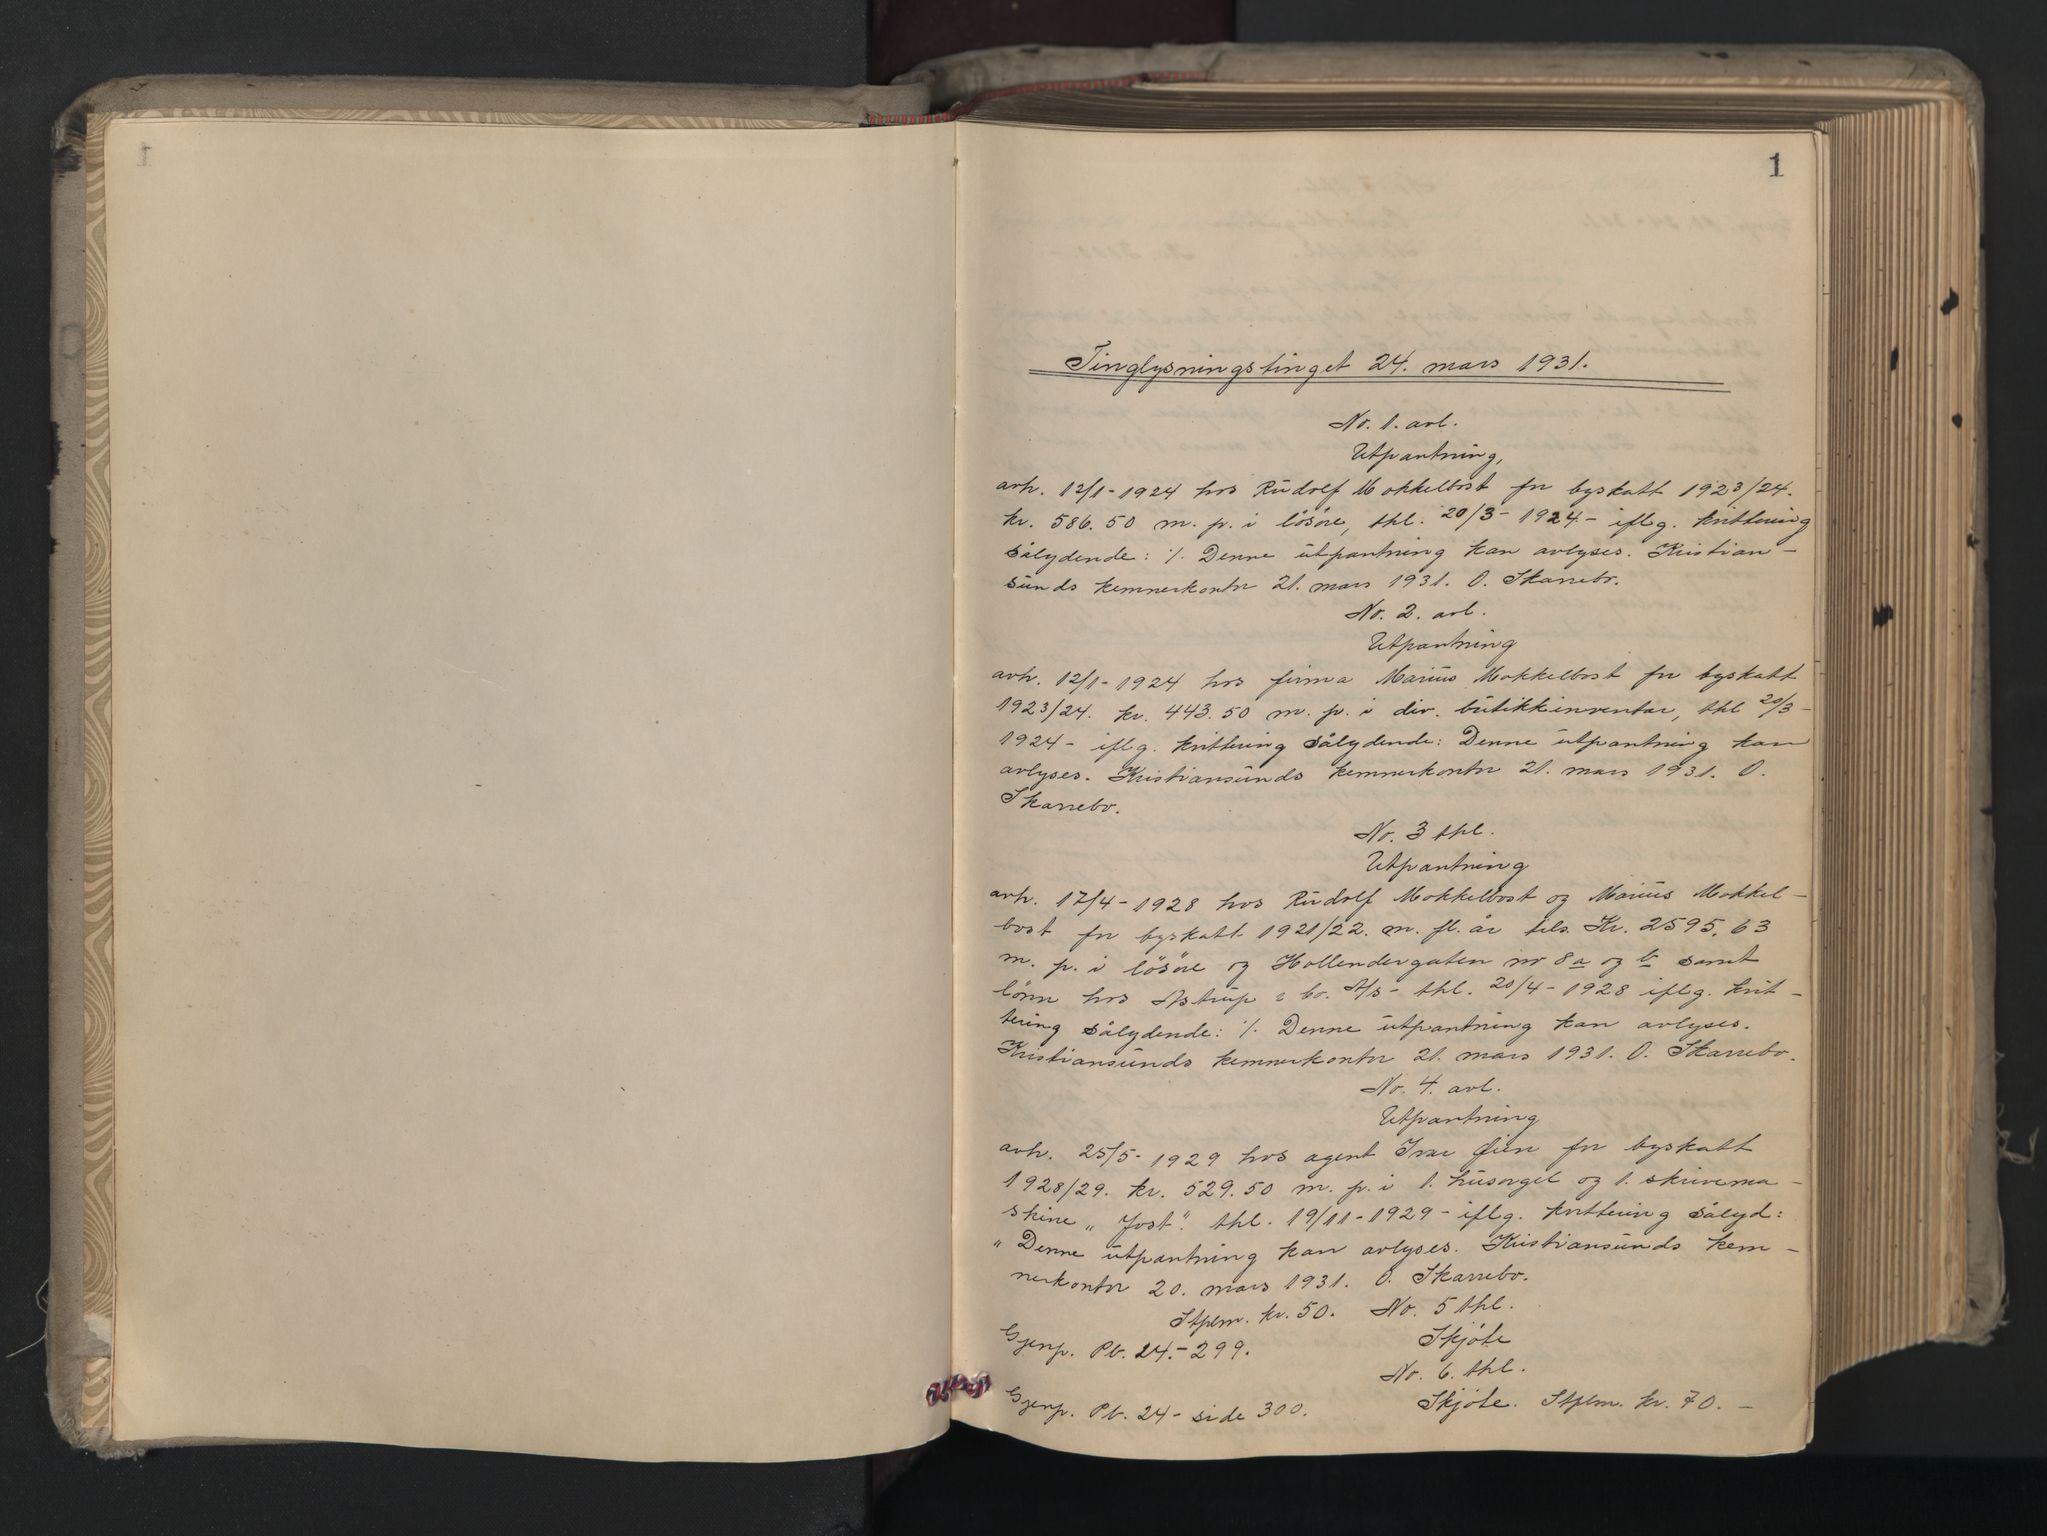 1
Tinglysningstinget 24. mars 1931.
No. 1. avl.
Utpantning,
avh. 12/1-1924 hos Rudolf Mokkelbost for byskatt 1923/24.
kr. 586.50 m. p. i lösöre, thl. 20/3-1924- iflg. kvittering
sålydende: ·/. Denne utpantning kan avlyses. Kristian-
sunds kemnerkontor 21. mars 1931. O. Skarrebo.
No. 2. avl.
Utpantning
avh. 12/1-1924 hos firma Marius Mokkelbost for byskatt
1923/24. kr. 443.50 m. p. i div. butikkinventar, thl 20/3-
1924- iflg. kvittering sålydende: Denne utpantning kan
avlyses. Kristiansunds kemnerkontor 21. mars 1931. O.
Skarrebo.
No. 3 thl.
Utpantning
avh. 17/4-1928 hos Rudolf Mokkelbost og Marius Mokkel-
bost for byskatt 1921/22. m. fl. år tils. Kr. 2595,63
m. p. i lösöre og Hollendergaten nr 8a og b samt
lönn hos Astrup & Co. A/S- thl. 20/4-1928 iflg. kvit-
tering sålydende: ·/. Denne utpantning kan avlyses.
Kristiansunds kemnerkontor 21. mars 1931. O. Skarrebo.
No. 4. avl.
Utpantning
avh. 25/5-1929 hos agent Ivar Øien for byskatt
1928/29. kr. 529.50 m. p. i 1. husorgel og 1. skrivema-
skine „Yost". thl. 19/11-1929- iflg. kvittering sålyd:
" Denne utpantning kan avlyses. Kristiansunds kem-
nerkontor 20. mars 1931. O. Skarrebo.
Stplm. kr. 50. No. 5 thl.
Skjöte
Gjenp. Pb. 24.-299.
No. 6. thl.
Skjöte. Stplm. kr. 70.-
Gjenp. Pb. 24- side 300.